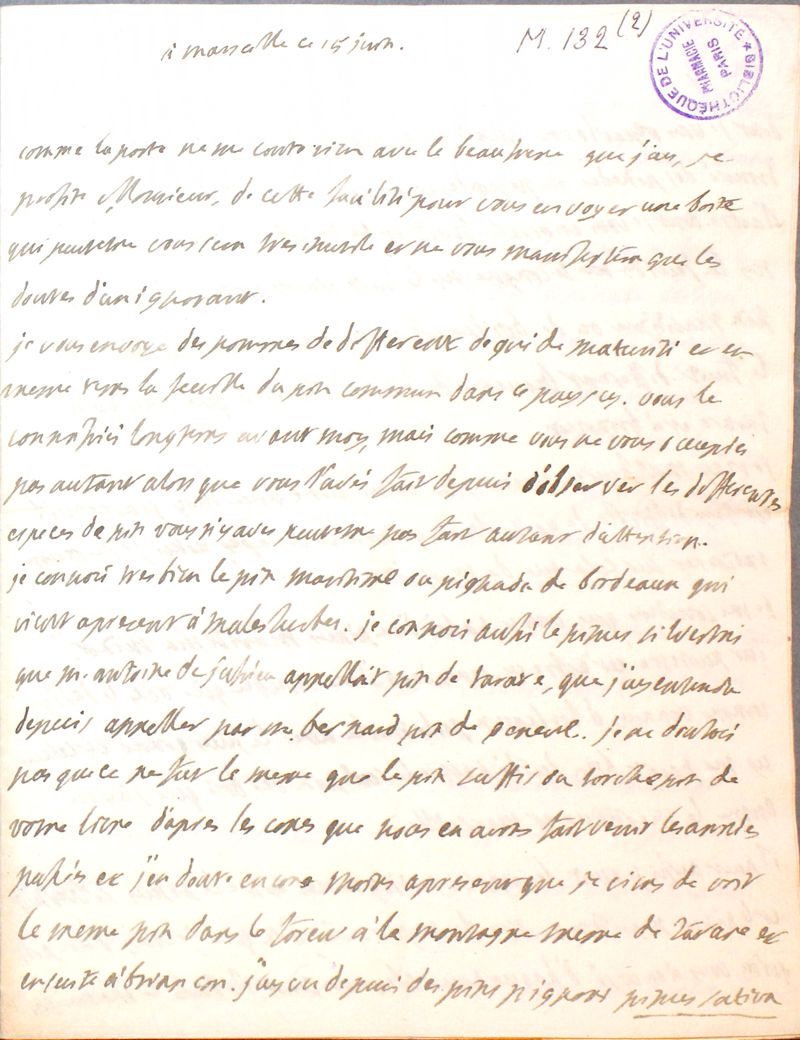 a marseille ce 15 juin.
M. 132 (2)
BIBLIOTHÈQUE DE L'UNIVERSITÉ
PHARMACIE
PARIS
comme la poste ne me coute rien avec le que j'ay, je
profite Monsieur, de cette facilité pour vous envoyer une boite
qui peutetre vous sera tres inutile et ne vous manifestera que les
doutes d'un ignorant.
je vous envoye des pommes de differents degrés de maturité et en
meme tems la feuille du pin commun dans ce pays cy. vous le
connoissiés longtems avant moy, mais comme vous ne vous occupiés
pas autant alors que vous l'avés fait depuis d'observer les differentes
especes de pin vous n'y avés peutetre pas fait autant d'attention.
je connois tres bien le pin maritime ou pighada de bordeaux qui
vient apresent à malesherbes. je connois aussi le pinus silvestris
que m. antoine de jussieu appelloit pin de tarare, que j'ay entendu
depuis appeller par m. bernard pin de geneve. je ne doutois
pas que ce ne fut le meme que le pin suffis ou torchepin de
votre livre d'apres les cones que nous en avons fait venir les années
passées et j'en doute encore moins apresent que je viens de voir
le meme pin dans le forest à la montagne meme de tarare et
ensuite à briancon. j'ay vu depuis des pins pignons pinus sativa